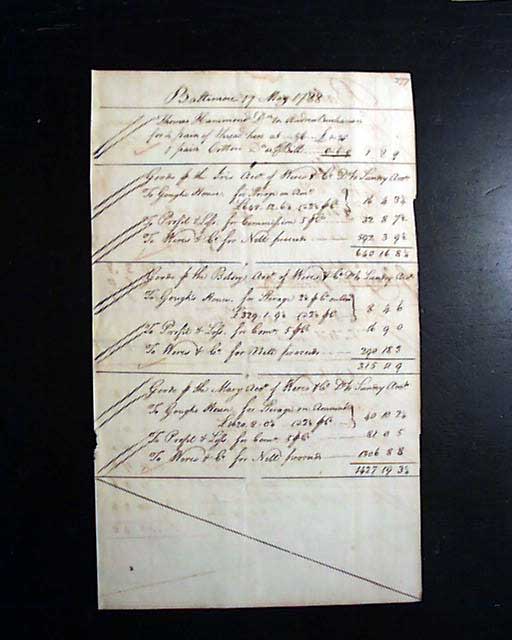 Baltimore 17 May 1788
Thomas Hammond Dr to
for 4 pair of thread hose at
1 pair Cotton Do 1 8 9
Goods p the Iris Acct of Weres & Co Dr to Sundry Accts
To Gough's House for Storage on Amt
@ 2½ pCt 16 4 3½
To Profit & Loss for Commission 5 pCt 32 8 7½
To Weres & Co for Nett proceeds 592 3 9½
640 16 8½
Goods p the Betsey Acct of Weres & Co Dr to Sundry Accts
To Gough's House for Storage 2½ pCt on
£329.1.9½ @ 2½ pCt 8 4 6
To Profit & Loss for Comn 5 pCt 16 9 0
To Weres & Co for Nett proceeds 290 18 3
315 11 9
Goods p the Mary Acct of Weres & Co Dr to Sundry Accts
To Gough's House for Storage on Amount
@ 2½ pCt 40 10 7½
To Profit & Loss for Comn 5 pCt 81 0 5
To Weres & Co for Nett proceeds 1306 8 8
1427 19 3½